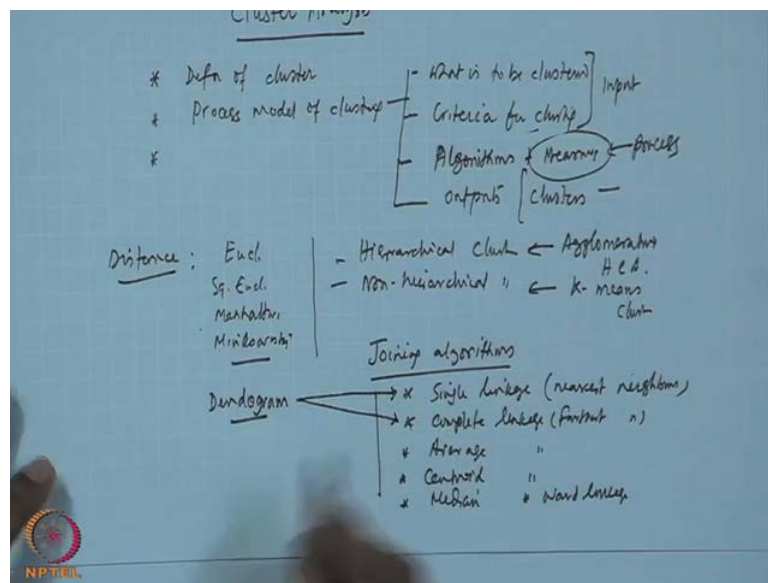 Cluster Analysis
* Defn of cluster
* Process model of clustering
*
- What is to be clustered
- Criteria for clustering
] Input
- Algorithms + Measures ← process
outputs [ clusters —
Distance : Eucl.
Sq. Eucl.
Manhattan
Minkowski
- Hierarchical Clust ← Agglomerative
H C A.
- Non-heirarchical " ← K-means
Clust
Dendogram
Joining algorithms
* Single linkage (nearest neighbours)
* Complete linkage (farthest ")
* Average "
* Centroid "
* Median * Ward linkage
NPTEL